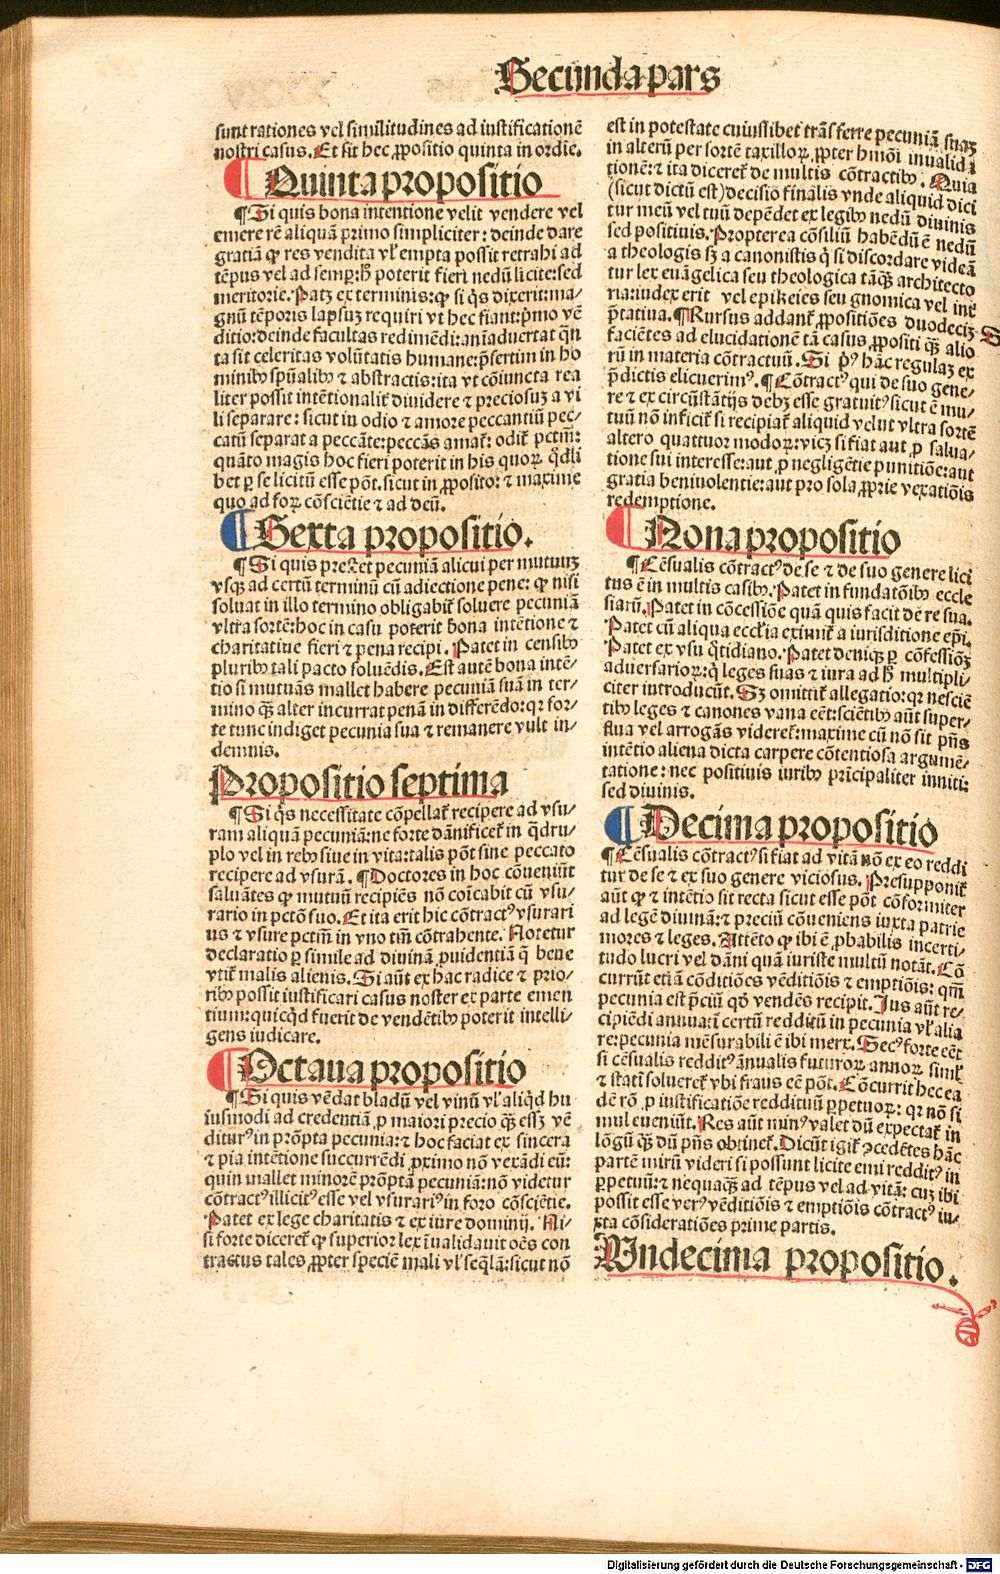 Secunda pars
sunt rationes vel similitudines ad iustificationē
nostri casus. Et sit hec ꝓpositio quinta in ordīe.
Quinta propositio
¶ Si quis bona intentione velit vendere vel
emere rē aliquā primo simpliciter: deinde dare
gratiā ꝙ res vendita vł empta possit retrahi ad
tēpus vel ad semꝑ: hꝰ poterit fieri nedū licite: sed
meritorie. Patꝫ ex terminis: ꝙ si q̄s dixerit: ma⸗
gnū tēporis lapsuꝫ requiri vt hec fiant: p̄mo vē
ditio: deinde facultas redimēdi: aīaduertat q̄n
ta sit celeritas volūtatis humane: p̄sertim in ho
minibꝰ spūalibꝰ ⁊ abstractis: ita vt cōiuncta rea
liter possit intētionalit̄ diuidere ⁊ preciosuꝫ a vi
li separare: sicut in odio ⁊ amore peccantiū pec⸗
catū separat a peccāte: peccās amat̄: odit̄ pctm̄:
quāto magis hoc fieri poterit in his quoꝝ q̄dli
bet ꝑ se licitū esse pōt. sicut in ꝓposito: ⁊ maxime
quo ad foꝝ cōsciētie ⁊ ad deū.
Sexta propositio.
¶ Si quis prestet pecuniā alicui per mutuuꝫ
vsqꝫ ad certū terminū cū adiectione pene: ꝙ nisi
soluat in illo termino obligabit̄ soluere pecuniā
vltra sortē: hoc in casu poterit bona intētione ⁊
charitatiue fieri ⁊ pena recipi. Patet in censibꝰ
pluribꝰ tali pacto soluēdis. Est autē bona intē⸗
tio si mutuās mallet habere pecuniā suā in ter⸗
mino qꝫ alter incurrat penā in differēdo: qꝛ for⸗
te tunc indiget pecunia sua ⁊ remanere vult in⸗
demnis.
Propositio septima
¶ Si q̄s necessitate cōpellat̄ recipere ad vsu⸗
ram aliquā pecuniā: ne forte dānificet̄ in q̄dru⸗
plo vel in rebꝰ siue in vita: talis pōt sine peccato
recipere ad vsurā. ¶ Doctores in hoc cōueniūt
saluātes ꝙ mutuū recipiēs nō coīcabit cū vsu⸗
rario in pctō suo. Et ita erit hic cōtractꝰ vsurari
us ⁊ vsure pctm̄ in vno tm̄ cōtrahente. Noretur
declaratio ꝑ simile ad diuinā ꝓuidentiā q̄ bene
vtit̄ malis alienis. Si aūt ex hac radice ⁊ prio⸗
ribꝰ possit iustificari casus noster ex parte emen
tium: quicqd fuerit de vendētibꝰ poterit intelli⸗
gens iudicare.
Octaua propositio
¶ Si quis vēdat bladū vel vinū vł aliqd hu
iusmodi ad credentiā ꝓ maiori precio qꝫ essꝫ vē
diturꝰ in prōpta pecunia: ⁊ hoc faciat ex sincera
⁊ pia intētione succurrēdi ꝓximo nō vexādi eū:
quin mallet minorē prōptā pecuniā: nō videtur
cōtractꝰ illicitꝰ esse vel vsurariꝰ in foro cōsciētie.
Patet ex lege charitatis ⁊ ex iure dominij. Ni⸗
si forte diceret̄ ꝙ superior lex īualidauit oēs con
tractus tales ꝓpter speciē mali vł seq̄lā: sicut nō
est in potestate cuiuslibet trāsferre pecuniā suaꝫ
in alterū per sortē taxilloꝝ ꝓpter hmōi inualida
tionē: ⁊ ita diceret̄ de multis cōtractibꝰ. Quia
(sicut dictū est) decisio finalis vnde aliquid dici
tur meū vel tuū depēdet ex legibꝰ nedū diuinis
sed positiuis. Propterea cōsiliū habēdū ē nedū
a theologis sꝫ a canonistis q̄ si discordare videā
tur lex euāgelica seu theologica tāqꝫ architecto
ria: iudex erit vel epikeies seu gnomica vel int̄
p̄tatiua. ¶ Rursus addant̄ ꝓpositiōes duodeciꝫ
faciētes ad elucidationē tā casus ꝓpositi qꝫ alio
rū in materia cōtractuū. Si pꝰ hāc regulaꝫ ex
p̄dictis elicuerimꝰ. ¶ Cōtractꝰ qui de suo gene⸗
re ⁊ ex circūstātijs debꝫ esse gratuitꝰ sicut ē mu⸗
tuū nō inficit̄ si recipiat̄ aliquid velut vltra sortē
altero quattuor modoꝝ: vicꝫ si fiat aut ꝓ salua⸗
tione sui interesse: aut ꝓ negligētie punitiōe: aut
gratia beniuolentie: aut pro sola ꝓprie vexatiōis
redemptione.
Nona propositio
¶ Cēsualis cōtractꝰ de se ⁊ de suo genere lici
tus ē in multis casibꝰ. Patet in fundatōibꝰ eccle
siarū. Patet in cōcessiōe quā quis facit de re sua.
Patet cū aliqua eccł̄ia eximit̄ a iurisditione ep̄i.
Patet ex vsu q̄tidiano. Patet deniqꝫ ꝑ cōfessiōꝫ
aduersarioꝝ: q̄ leges suas ⁊ iura ad hꝰ multipli⸗
citer introducūt. Sꝫ omittit̄ allegatio: qꝛ nesciē
tibꝰ leges ⁊ canones vana eēt: sciētibꝰ aūt super⸗
flua vel arrogās videret̄: maxime cū nō sit p̄ns
intētio aliena dicta carpere cōtentiosa argumē⸗
tatione: nec positiuis iuribꝰ prīcipaliter inniti:
sed diuinis.
Decima propositio
¶ Cēsualis cōtractꝰ si fiat ad vitā nō ex eo reddi
tur de se ⁊ ex suo genere viciosus. Presupponit̄
aūt ꝙ ⁊ intētio sit recta sicut esse pōt cōformiter
ad legē diuinā: ⁊ preciū cōueniens iuxta patrie
mores ⁊ leges. Attēto ꝙ ibi ē ꝓbabilis incerti⸗
tudo lucri vel dāni quā iuriste multū notāt. Cō
currūt etiā cōditiōes vēditiōis ⁊ emptiōis: qm̄
pecunia est p̄ciū qd̄ vendēs recipit. Ius aūt re⸗
cipiēdi annuatī certū redditū in pecunia vł alia
re: pecunia mēsurabili ē ibi merx. Secꝰ forte eēt
si cēsualis redditꝰ ānualis futuroꝝ annoꝝ simł
⁊ statī solueret̄ vbi fraus eē pōt. Cōcurrit hec ea
dē rō ꝓ iustificatiōe reddituū ꝑpetuoꝝ: qꝛ nō si
mul eueniūt. Res aūt minꝰ valet dū expectat̄ in
lōgū qꝫ dū p̄ns obtinet̄. Dicūt igit̄ ꝯcedētes hāc
partē mirū videri si possunt licite emi redditꝰ in
ꝑpetuū: ⁊ nequaqꝫ ad tēpus vel ad vitā: cuꝫ ibi
possit esse verꝰ vēditiōis ⁊ emptiōis cōtractꝰ iu⸗
xta cōsideratiōes prime partis.
Undecima propositio.
Digitalisierung gefördert durch die Deutsche Forschungsgemeinschaft - DFG